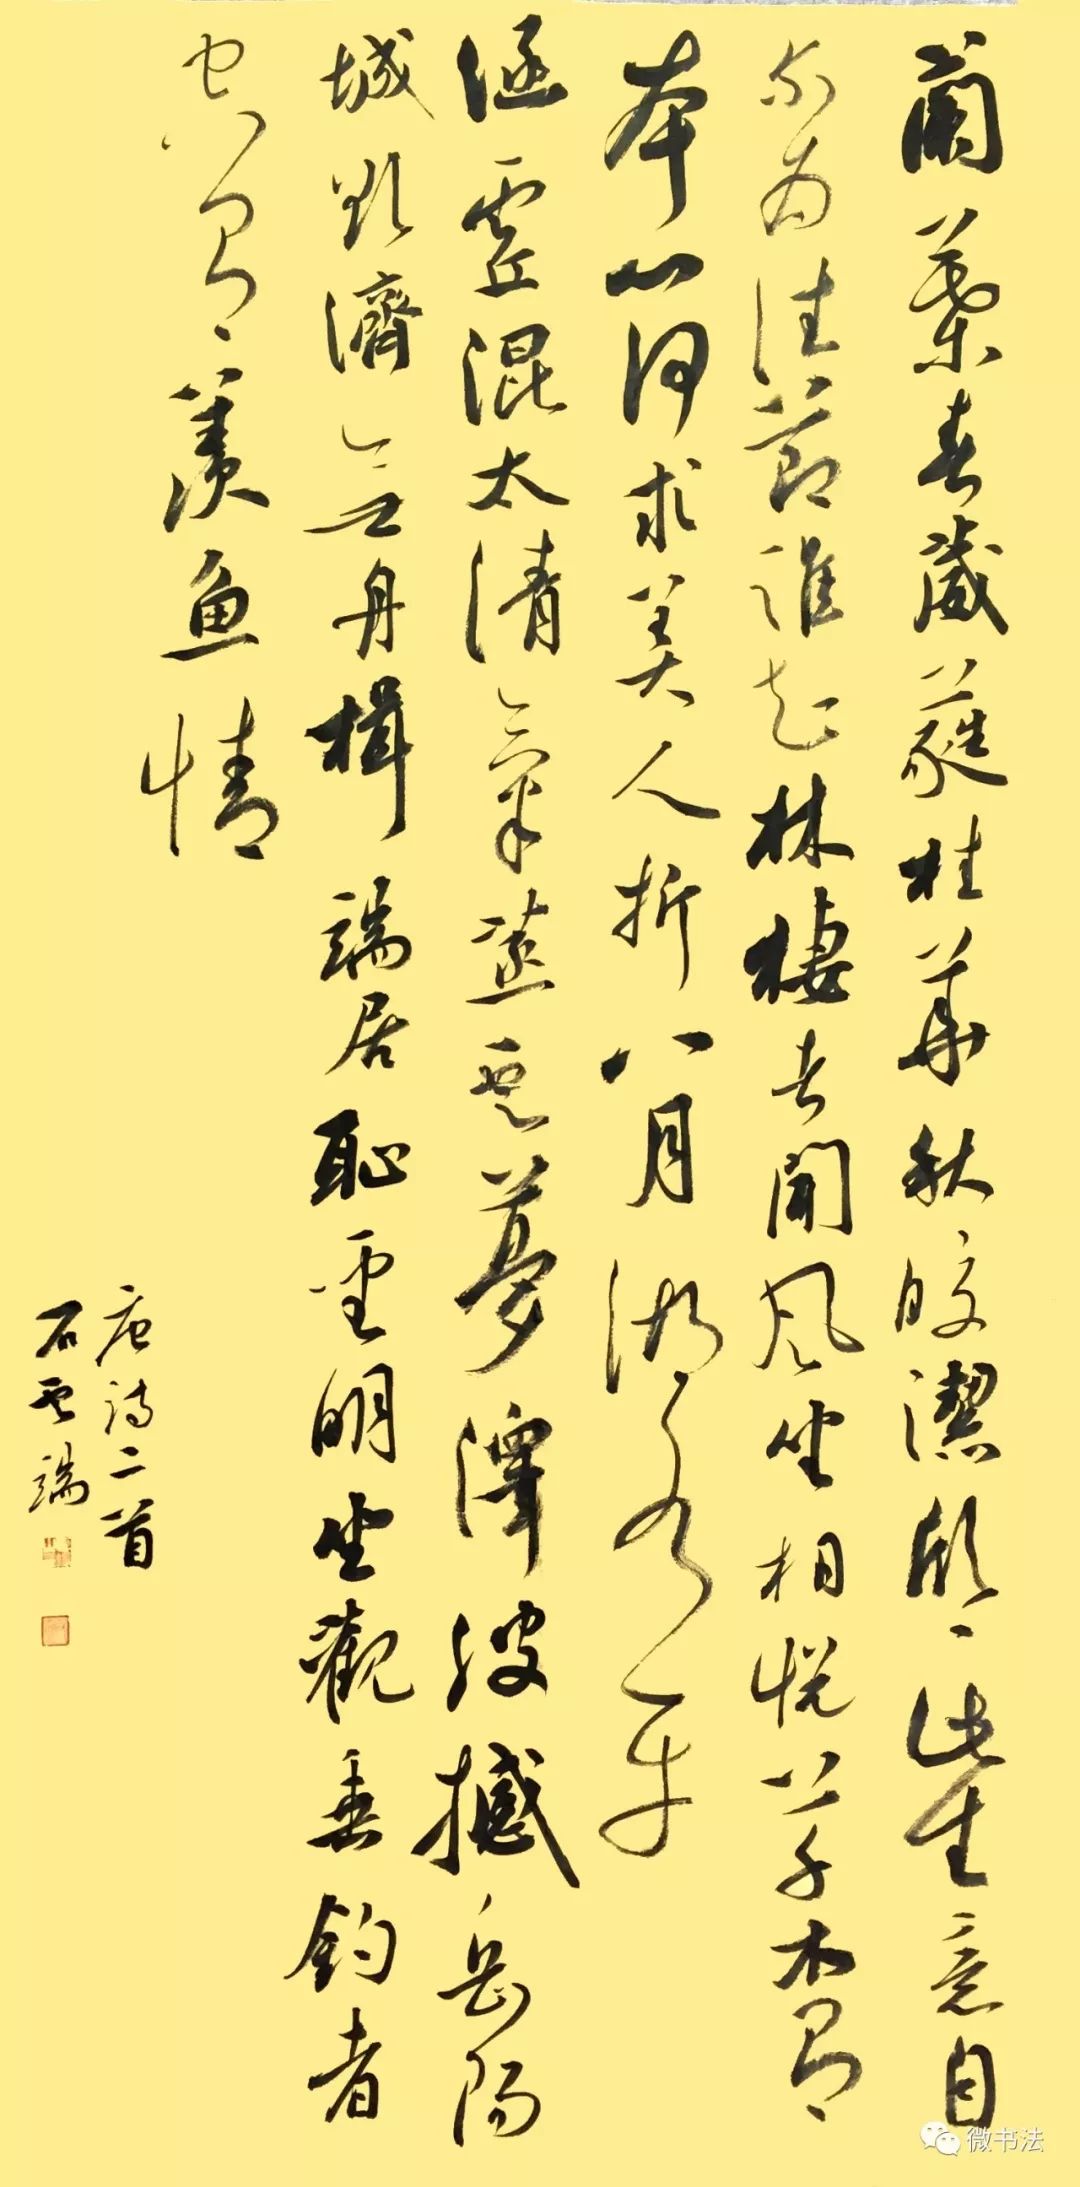 蘭葉春葳蕤桂華秋皎潔欣々此生意自
尔为佳節誰知林棲者聞風坐相悦草木有
本心何求美人折八月湖水平
涵虚混太清氣蒸雲夢澤波撼岳陽
城欲濟無舟楫端居恥聖明坐觀垂釣者
空有羡魚情
唐詩二首
石雲端
微书法